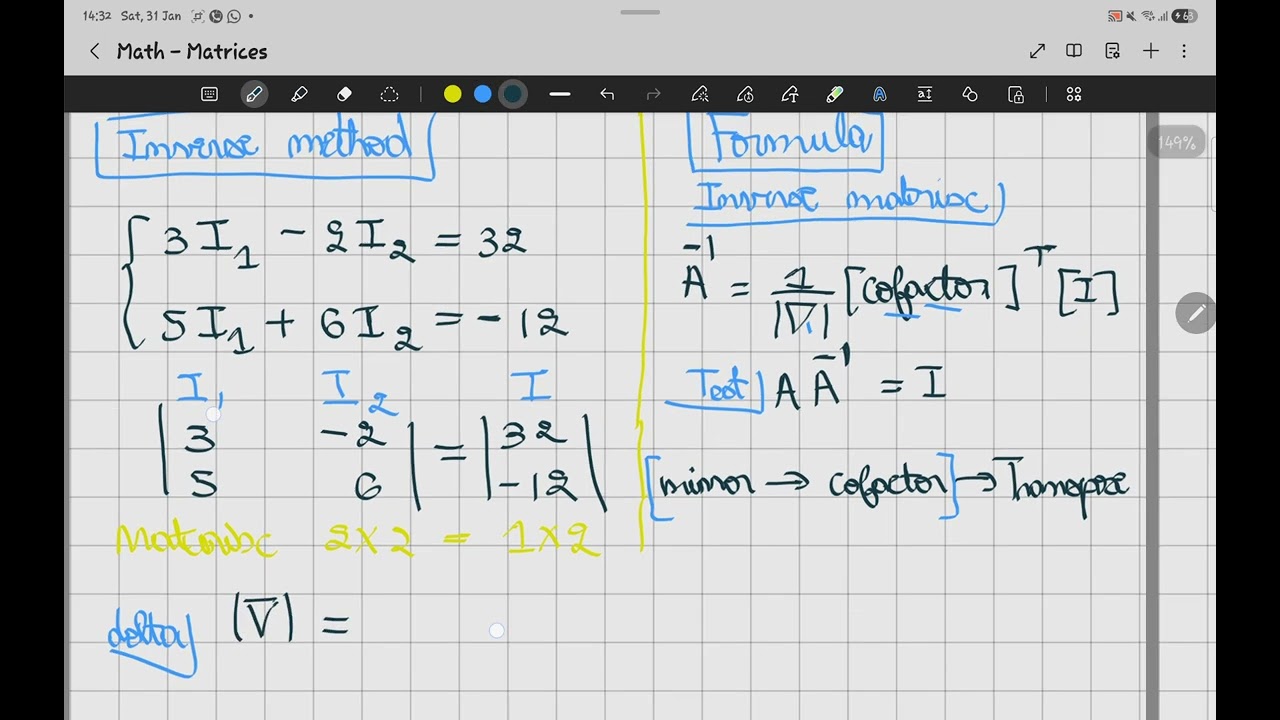 14:32 Sat, 31 Jan
63
Math – Matrices
149%
Inverse method
3I₁ - 2I₂ = 32
5I₁ + 6I₂ = -12
I₁ I₂ I
|3 -2| = |32|
|5 6| |-12|
2×2 = 1×2
delta |∇| =
Formula
Inverse
A⁻¹ = 1/|∇| [cofactor]ᵀ [I]
Test A A⁻¹ = I
[minor → cofactor] →